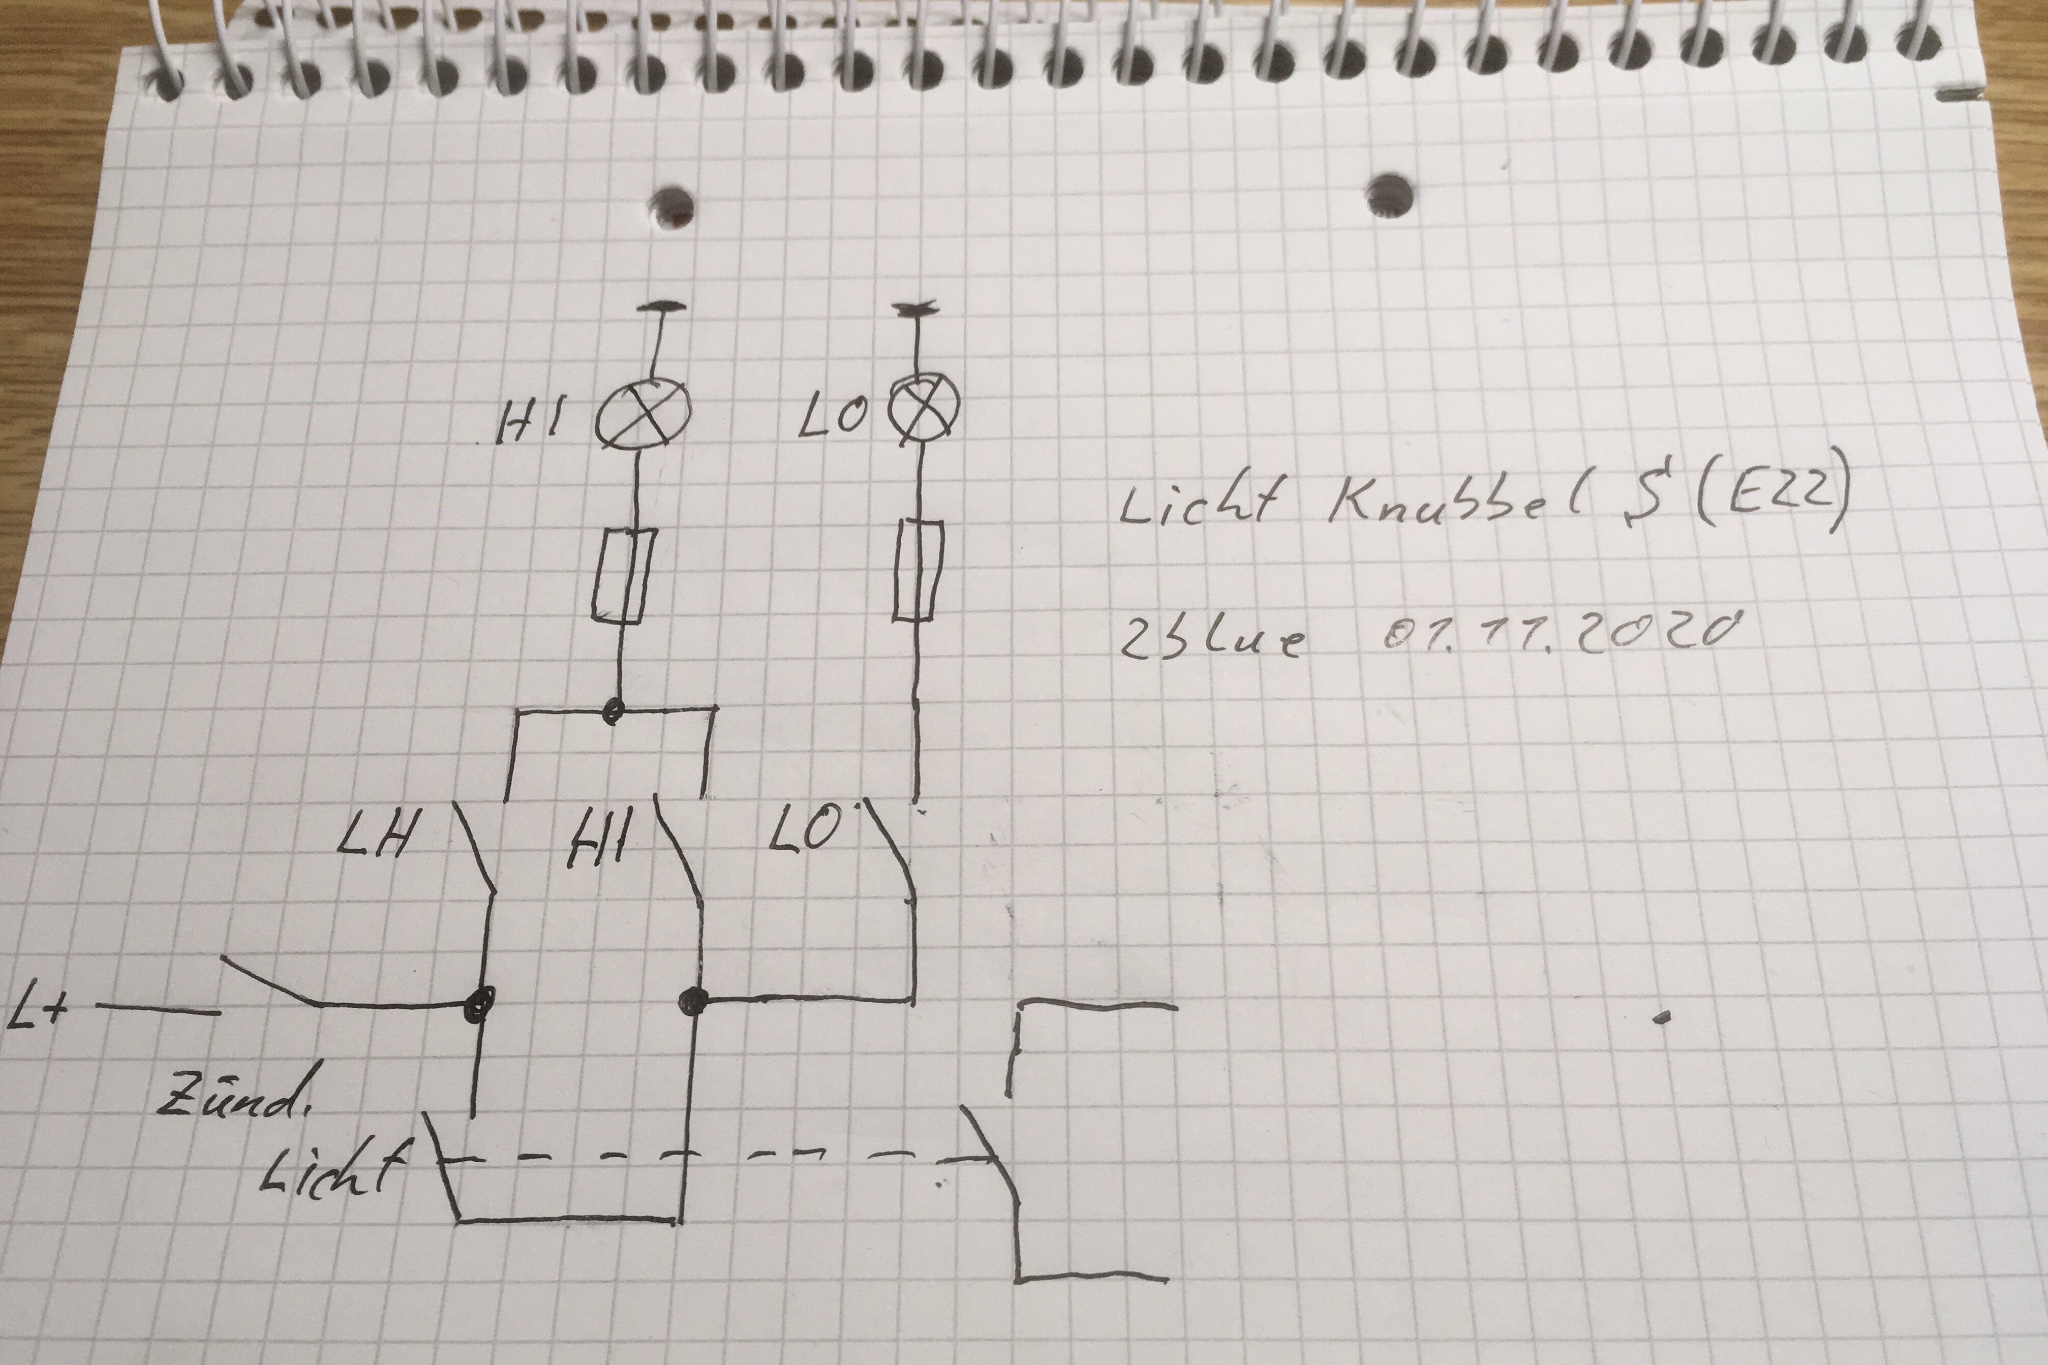 HI
LO
Licht Knubbel S (E22)
2blue 01.11.2020
LH
HI
LO
L+
Zünd.
Licht